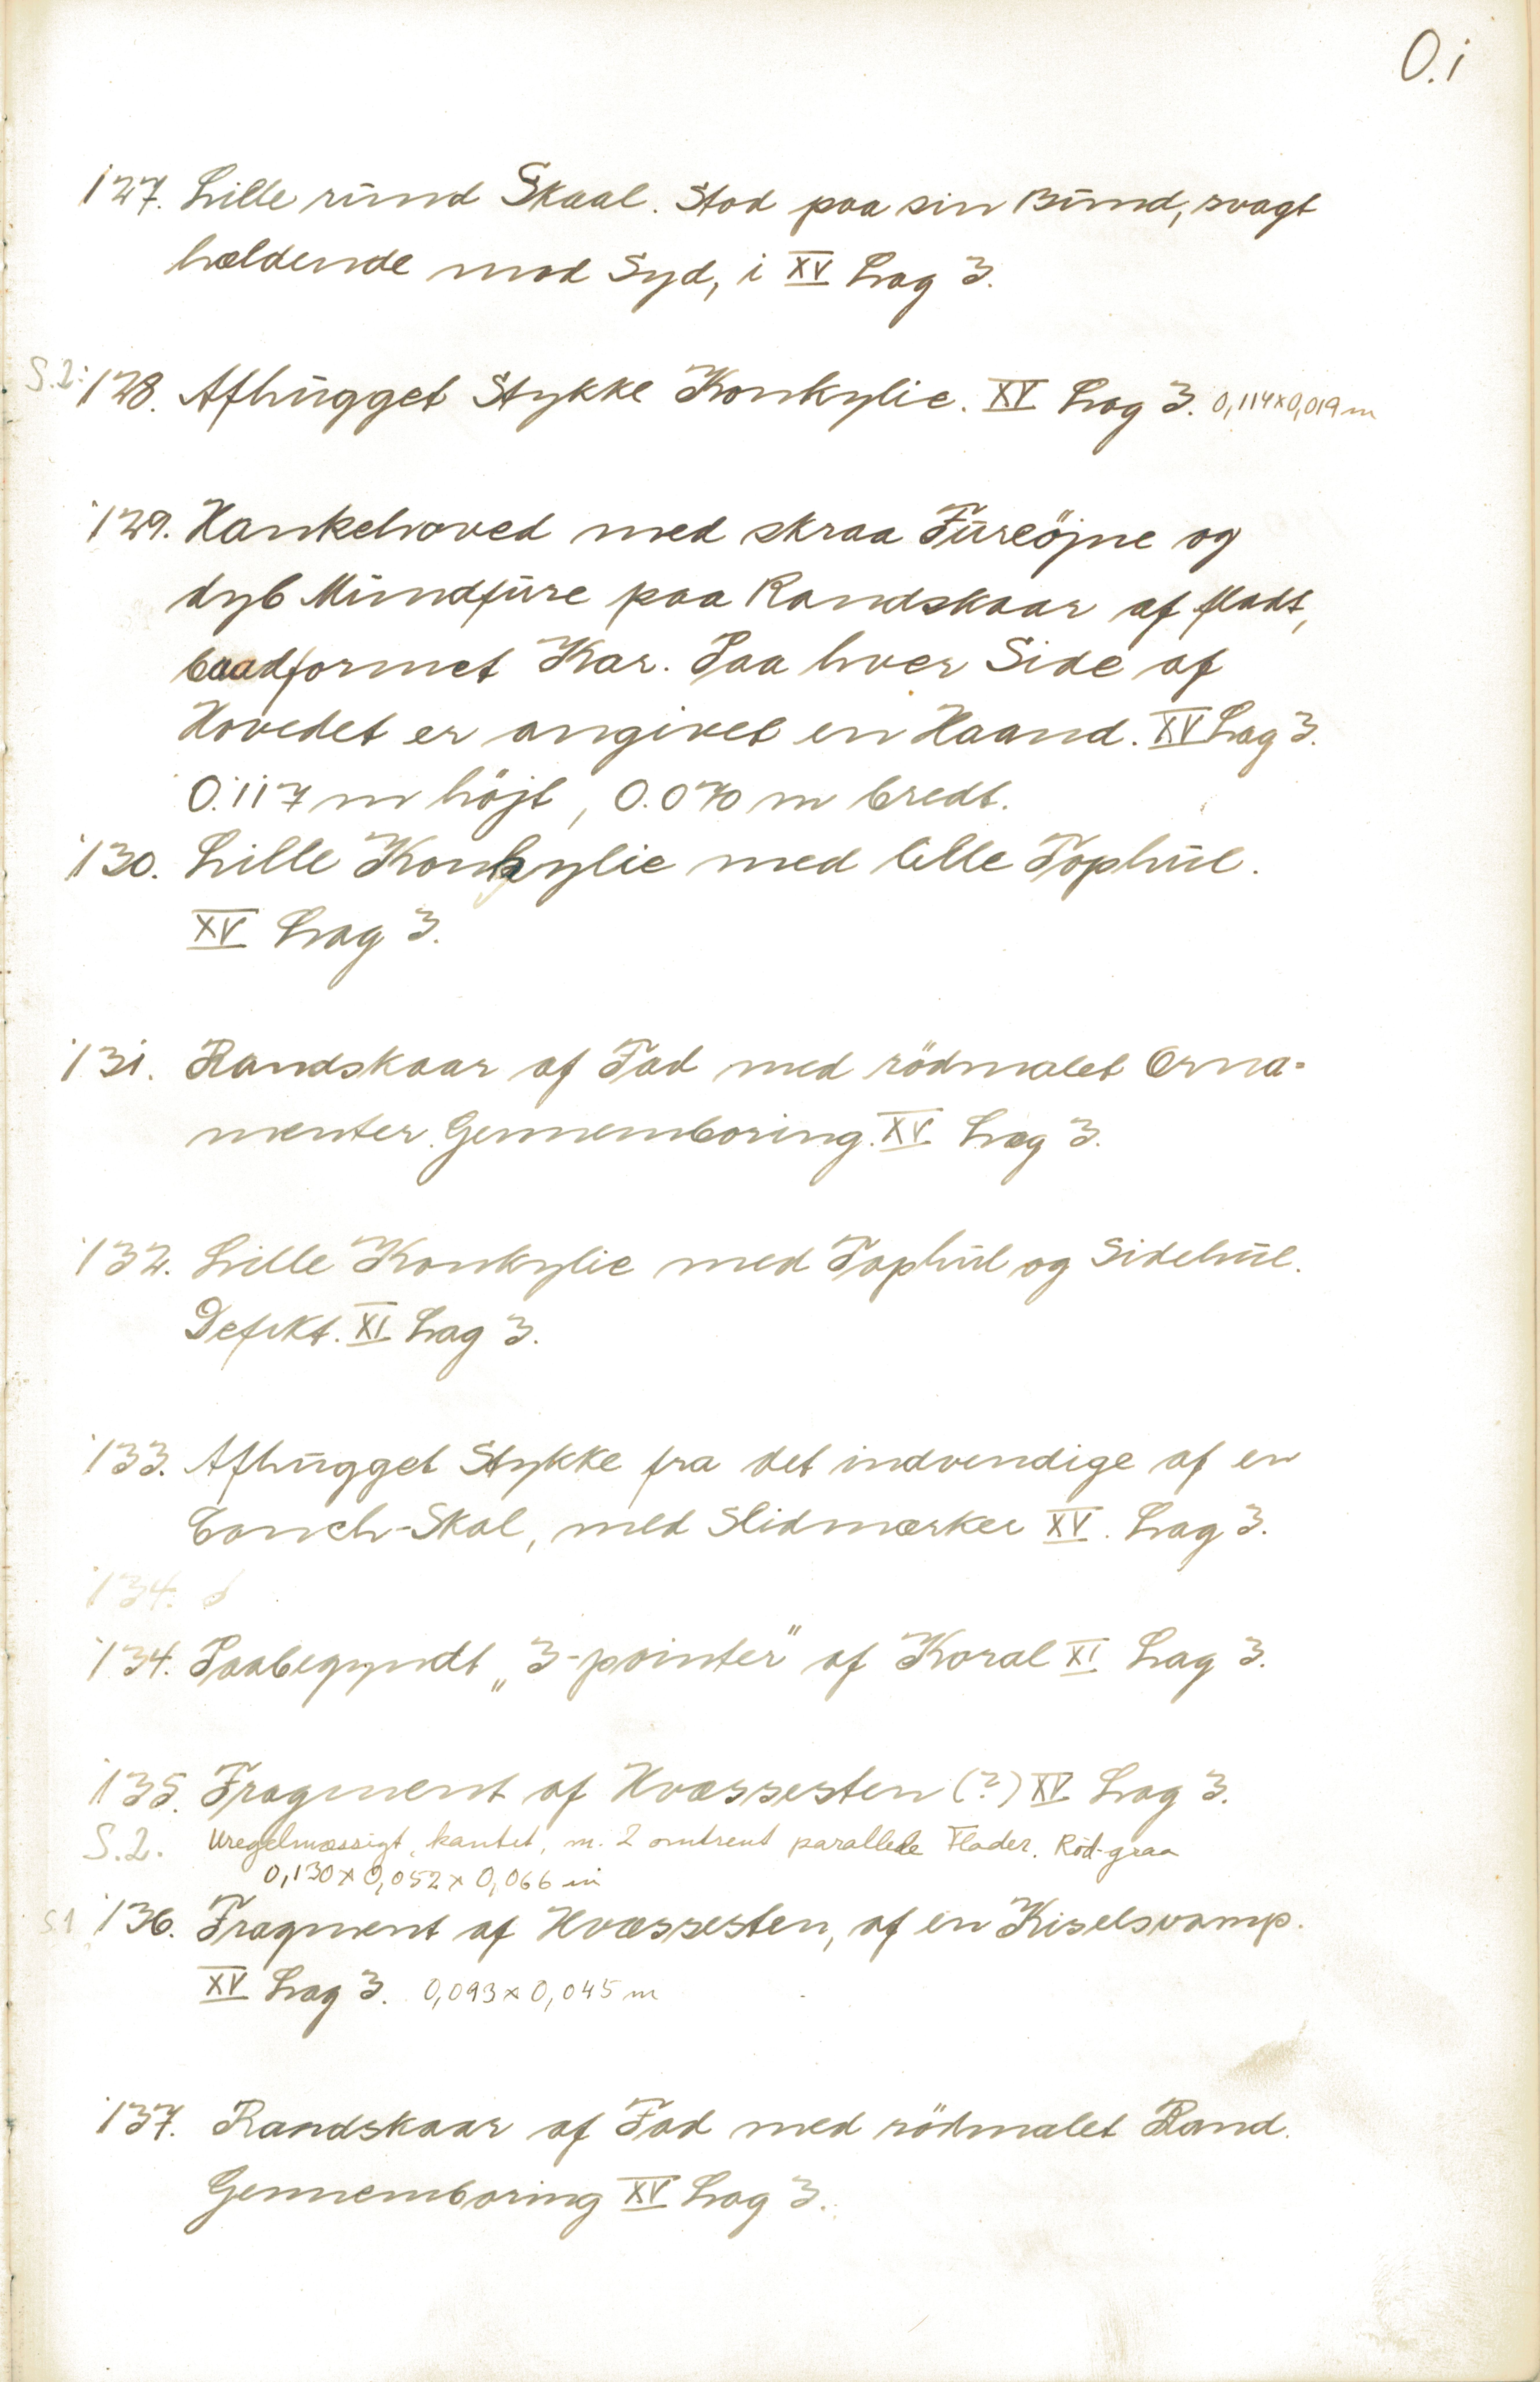 O.i
127. Lille rund Skaal. Stod paa sin Bund, svagt
hældende mod Syd, i XV Lag 3.
S.2: 128. Afhugget Stykke Konkylie. XV Lag 3. 0,114x0,019 m
129. Hankehoved med skraa Fureöjne og
dyb Mundfure paa Randskaar af fladt,
baadformet Kar. Paa hver Side af
Hovedet er angivet en Haand. XV Lag 3.
0.117 m höjt, 0.070 m bredt.
130. Lille Konkylie med lille Tophul.
XV Lag 3.
131. Randskaar af Fad med rödmalet Orna-
menter. Gennemboring. XV Lag 3.
132. Lille Konkylie med Tophul og Sidehul.
Defekt. XI Lag 3.
133. Afhugget Stykke fra det indvendige af en
Conch-Skal, med Slidmærker XV. Lag 3.
134.
134. Paabegyndt „3-pointer" af Koral XI Lag 3.
135. Fragment af Hvæssesten (?) XV Lag 3.
S.2. Uregelmæssigt, kantet, m. 2 omtrent parallele Flader. Röd-graa
0,130 x 0,052 x 0,066 m
S.1 136. Fragment af Hvæssesten, af en Kiselsvamp.
XV Lag 3. 0,093 x 0,045 m
137. Randskaar af Fad med rödmalet Rand.
Gennemboring XV Lag 3.